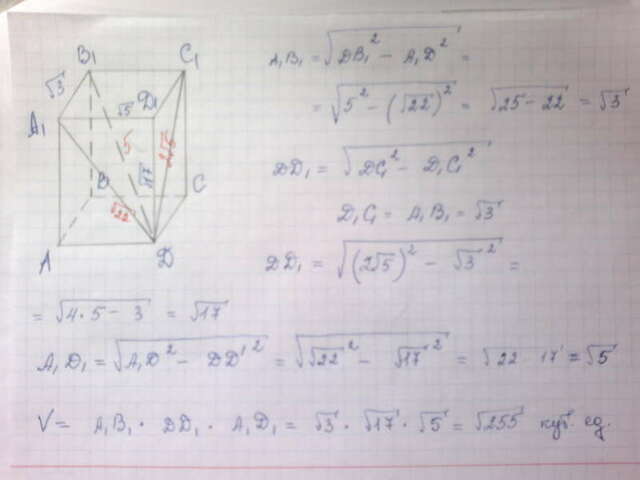 B₁ C₁
√3
A₁ √5 D₁
5 √17 2√5
B C
√22
A D
A₁B₁ = √(DB₁² - A₁D²) =
= √(5² - (√22)²) = √(25 - 22) = √3
DD₁ = √(DC₁² - D₁C₁²)
D₁C₁ = A₁B₁ = √3
DD₁ = √((2√5)² - √3²) =
= √(4·5 - 3) = √17
A₁D₁ = √(A₁D² - DD'²) = √(√22² - √17²) = √(22 17) = √5
V = A₁B₁ · DD₁ · A₁D₁ = √3 · √17 · √5 = √255 куб. ед.